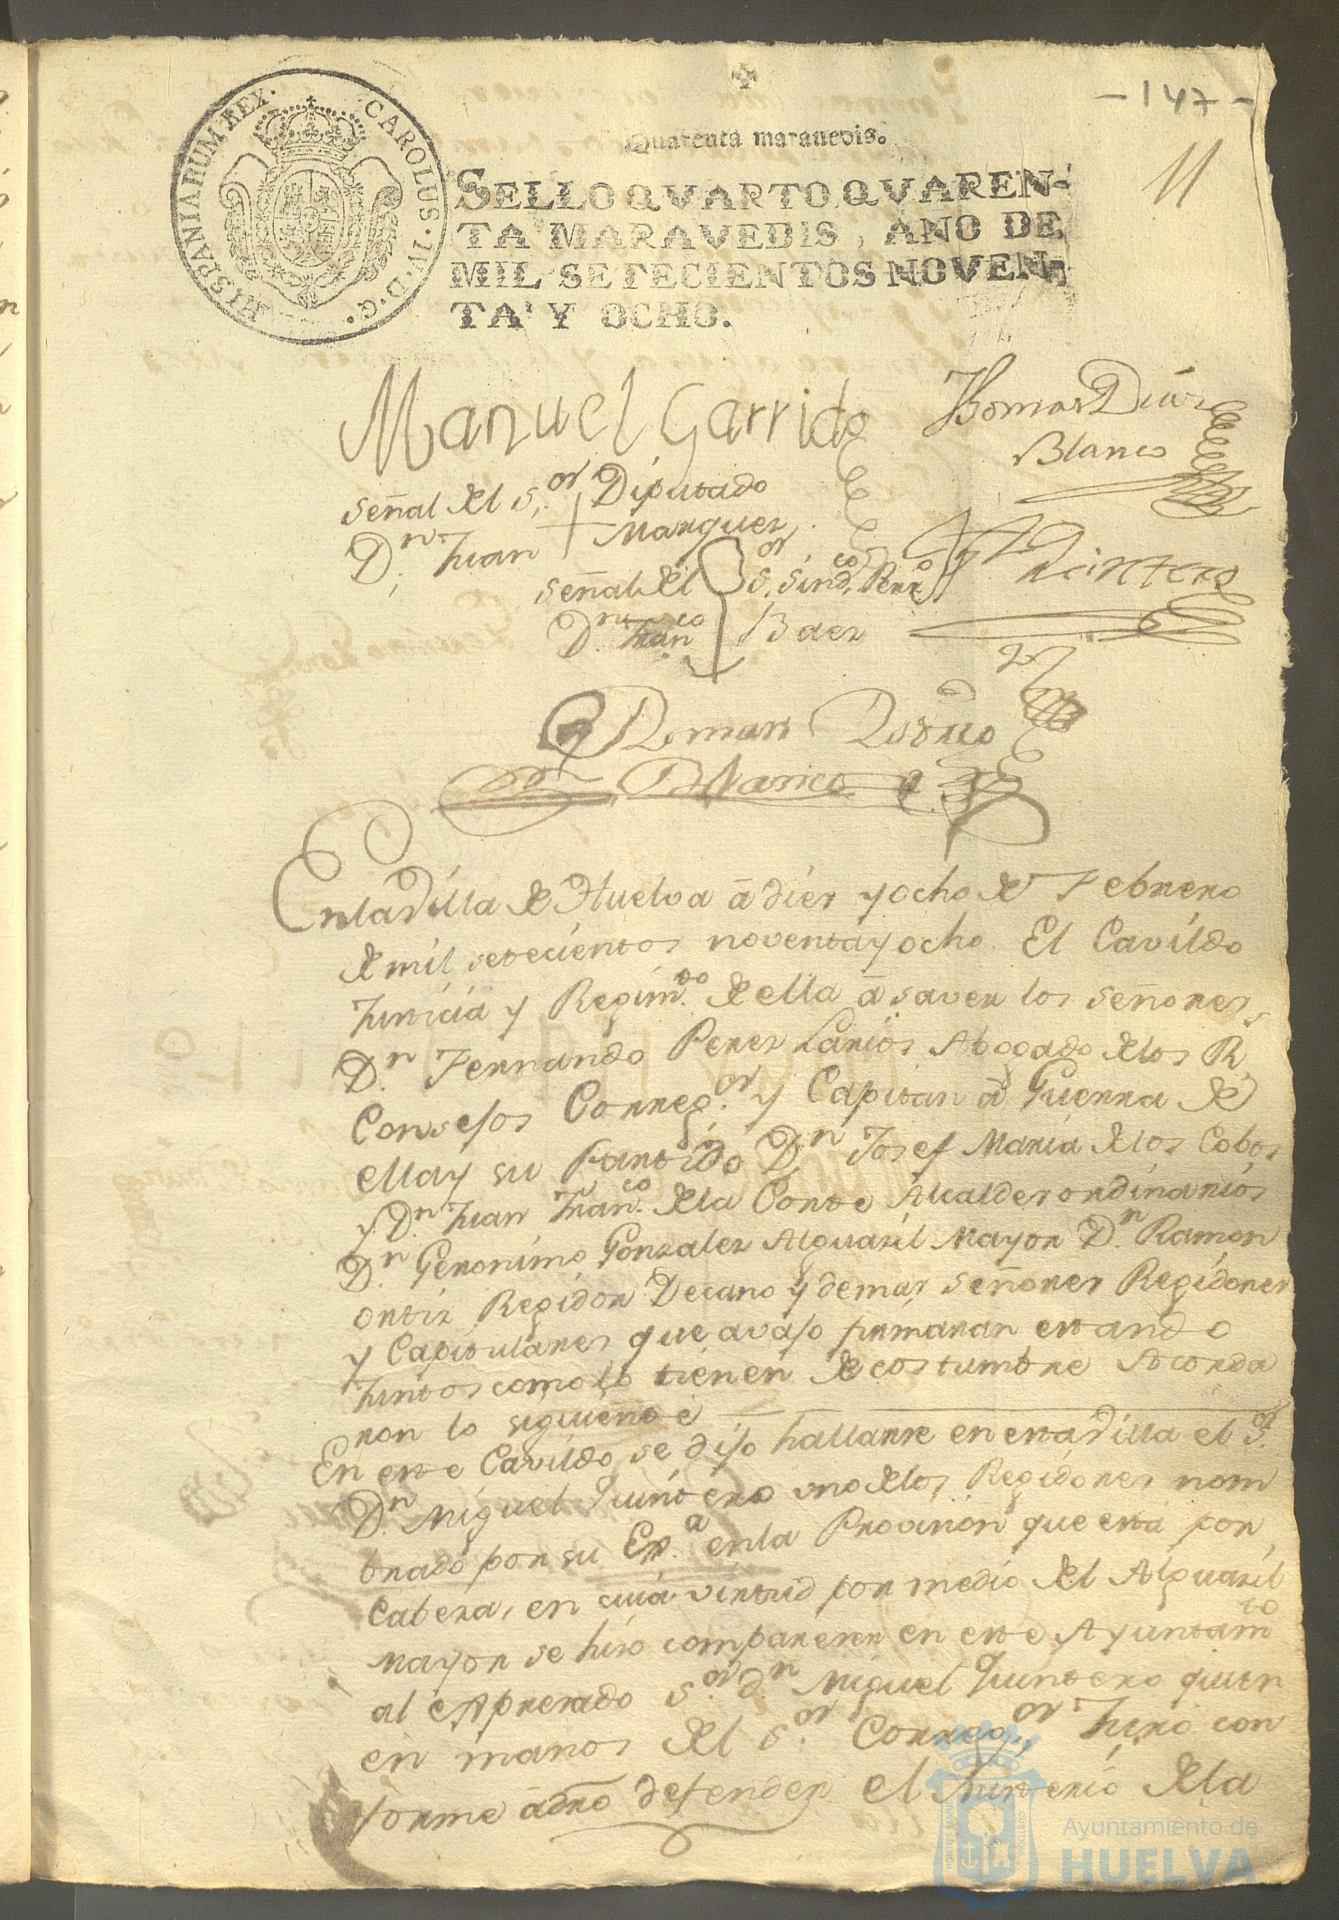 - 147 -
11
HISPANIARUM REX. CAROLUS. IV. D. G.
Quarenta maravedis.
SELLO QVARTO, QVAREN-
TA MARAVEDIS, AÑO DE
MIL SETECIENTOS NOVEN-
TA Y OCHO.
Manuel Garrido
Thomas Diaz
Blanco
señal del S.or Diputado
D.n Juan + Marquez
señal del S. Sind.co Perz.o
D.n Fran.co Baez
Quintero
Roman
Blanco
En la Villa de Huelva â diez y ocho de Febrero
de mil setecientos noventa y ocho. El Cavildo
Justicia y Regim.to de ella â saver los señores
D.n Fernando Perez Larios Abogado de los R.
Consejos Correg.or y Capitan â Guerra de
ella y su Partido D.n Josef Maria de los Cobos
y D.n Juan Fran.co de la Corte Alcaldes ordinarios
D.n Geronimo Gonzalez Alguazil Mayor D.n Ramon
ortiz Regidor Decano y demas señores Regidores
y Capitulares que avajo firmaran estando
Juntos como lo tienen de costumbre Acorda
ron lo siguiente
En este Cavildo se dijo hallarse en esta Villa el S.or
D.n Miguel Quintero uno de los Regidores nom
brado por su Ex.a en la Provision que está por
Cabeza, en cuia virtud por medio del Alguazil
Mayor se hizo comparecer en este Ayuntam.to
al expresado S.or D.n Miguel Quintero quien
en manos del S.or Correg.or Juró con
forme â dro defender el Misterio de la
Ayuntamiento de
HUELVA